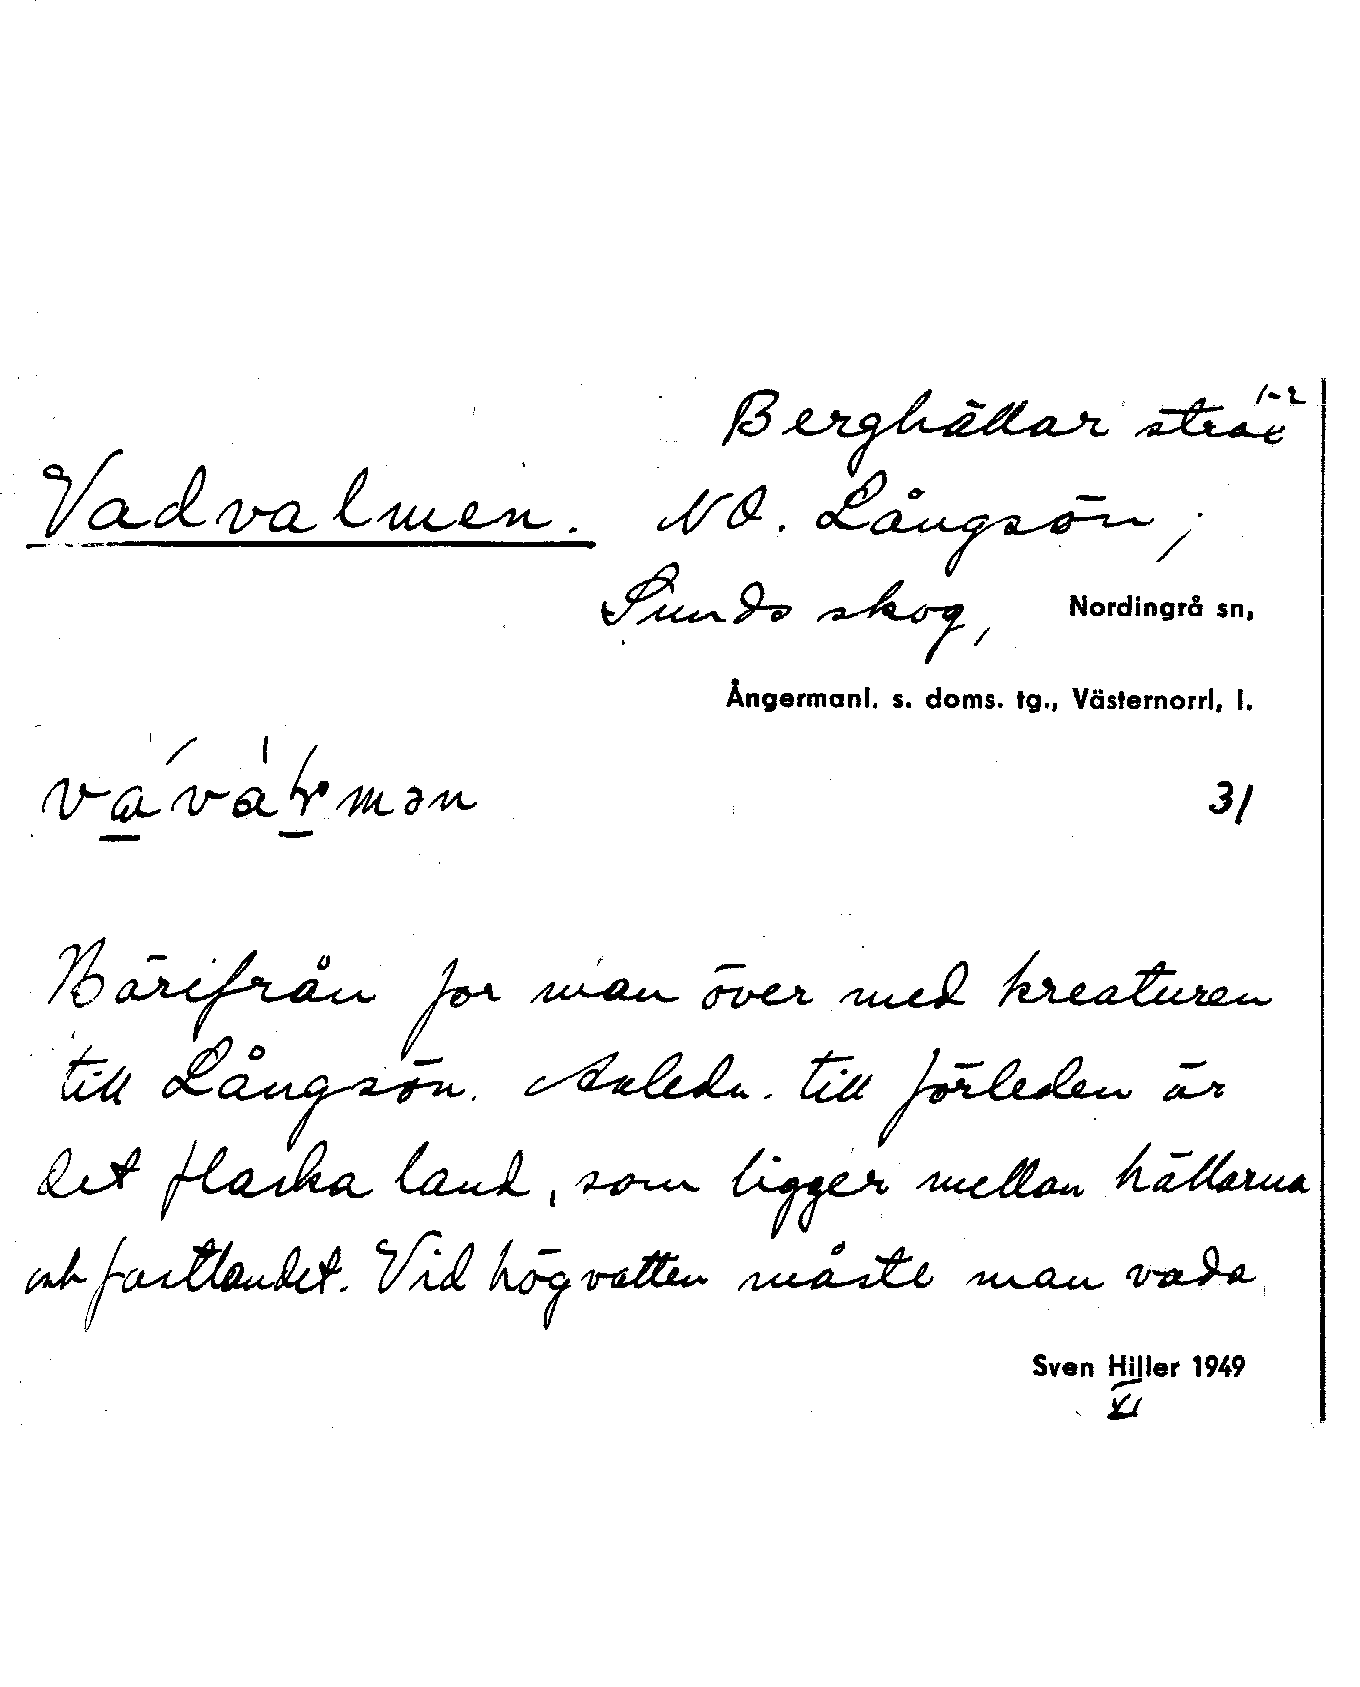 1-2
Berghällar strax
Vadvalmen. NO. Långsön,
Sunds skog, Nordingrå sn,
Ångermanl. s. doms. tg., Västernorrl. l.
31
Härifrån for man över med kreaturen
till Långsön. Anledn. till förleden är
det flacka land, som ligger mellan hällarna
och fastlandet. Vid högvatten måste man vada
Sven Hiller 1949
XI